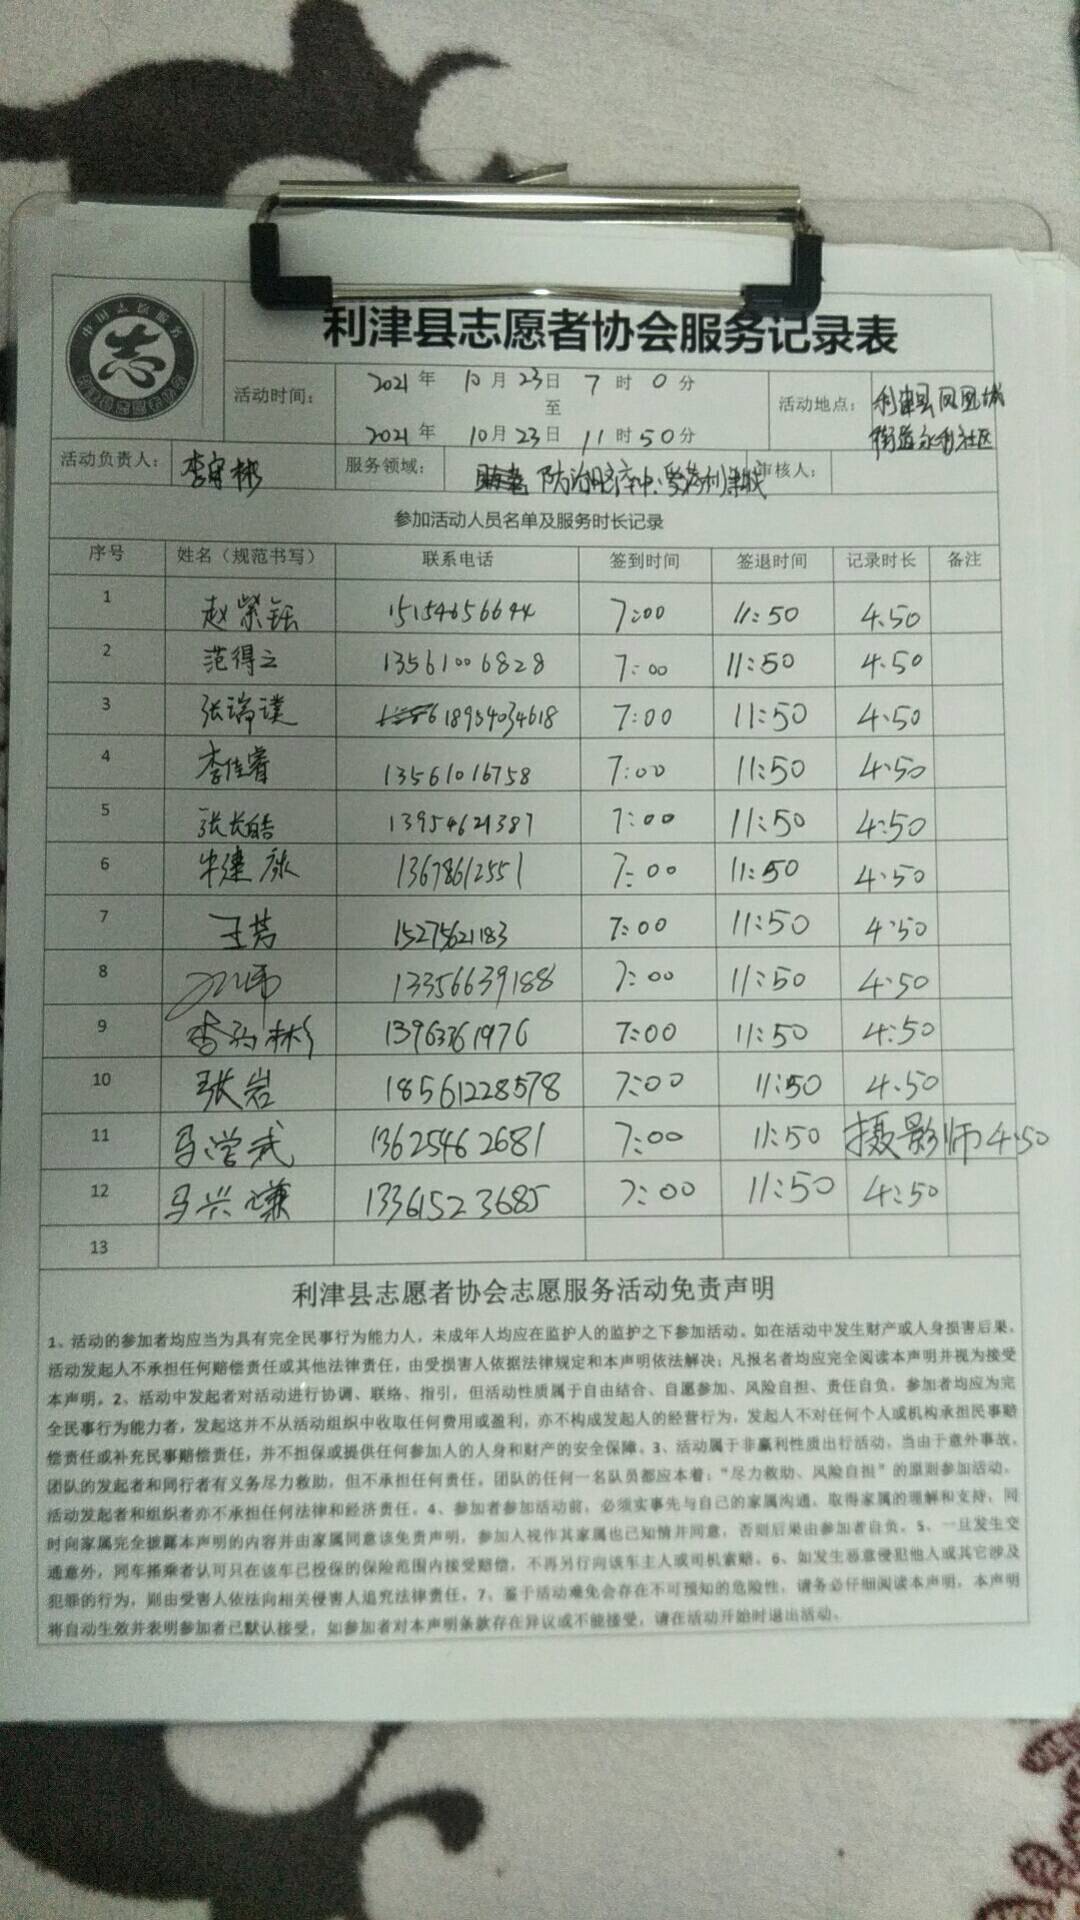 利津县志愿者协会服务记录表
活动时间： 2021 年 10 月 23 日 7 时 0 分
至
2021 年 10 月 23 日 11 时 50 分
活动地点： 利津县凤凰城
街道永利社区
活动负责人： 李守彬 服务领域： 防治脑卒中 审核人：
参加活动人员名单及服务时长记录
序号 姓名（规范书写） 联系电话 签到时间 签退时间 记录时长 备注
1 赵紫钰 15154656644 7:00 11:50 4:50
2 范得立 13561006828 7:00 11:50 4:50
3 张瑞璞 18954034618 7:00 11:50 4:50
4 李佳睿 13561016758 7:00 11:50 4:50
5 张长皓 13954621387 7:00 11:50 4:50
6 牛建康 13678612551 7:00 11:50 4:50
7 王芳 15275621183 7:00 11:50 4:50
8 13356639188 7:00 11:50 4:50
9 李守彬 13963361976 7:00 11:50 4:50
10 张岩 18561228578 7:00 11:50 4:50
11 马学武 13625462681 7:00 11:50 摄影师 4:50
12 马兴谦 13361523685 7:00 11:50 4:50
13
利津县志愿者协会志愿服务活动免责声明
1、活动的参加者均应当为具有完全民事行为能力人，未成年人均应在监护人的监护之下参加活动。如在活动中发生财产或人身损害后果，
活动发起人不承担任何赔偿责任或其他法律责任，由受损害人依据法律规定和本声明依法解决；凡报名者均应完全阅读本声明并视为接受
本声明。2、活动中发起者对活动进行协调、联络、指引，但活动性质属于自由结合、自愿参加、风险自担、责任自负，参加者均应为完
全民事行为能力者，发起这并不从活动组织中收取任何费用或盈利，亦不构成发起人的经营行为，发起人不对任何个人或机构承担民事赔
偿责任或补充民事赔偿责任，并不担保或提供任何参加人的人身和财产的安全保障。3、活动属于非赢利性质出行活动，当由于意外事故，
团队的发起者和同行者有义务尽力救助，但不承担任何责任。团队的任何一名队员都应本着：“尽力救助、风险自担”的原则参加活动。
活动发起者和组织者亦不承担任何法律和经济责任。4、参加者参加活动前，必须实事先与自己的家属沟通，取得家属的理解和支持，同
时向家属完全披露本声明的内容并由家属同意该免责声明，参加人视作其家属也已知情并同意，否则后果由参加者自负。5、一旦发生交
通意外，同车搭乘者认可只在该车已投保的保险范围内接受赔偿，不再另行向该车主人或司机索赔。6、如发生恶意侵犯他人或其它涉及
犯罪的行为，则由受害人依法向相关侵害人追究法律责任。7、鉴于活动难免会存在不可预知的危险性，请务必仔细阅读本声明，本声明
将自动生效并表明参加者已默认接受，如参加者对本声明条款存在异议或不能接受，请在活动开始时退出活动。